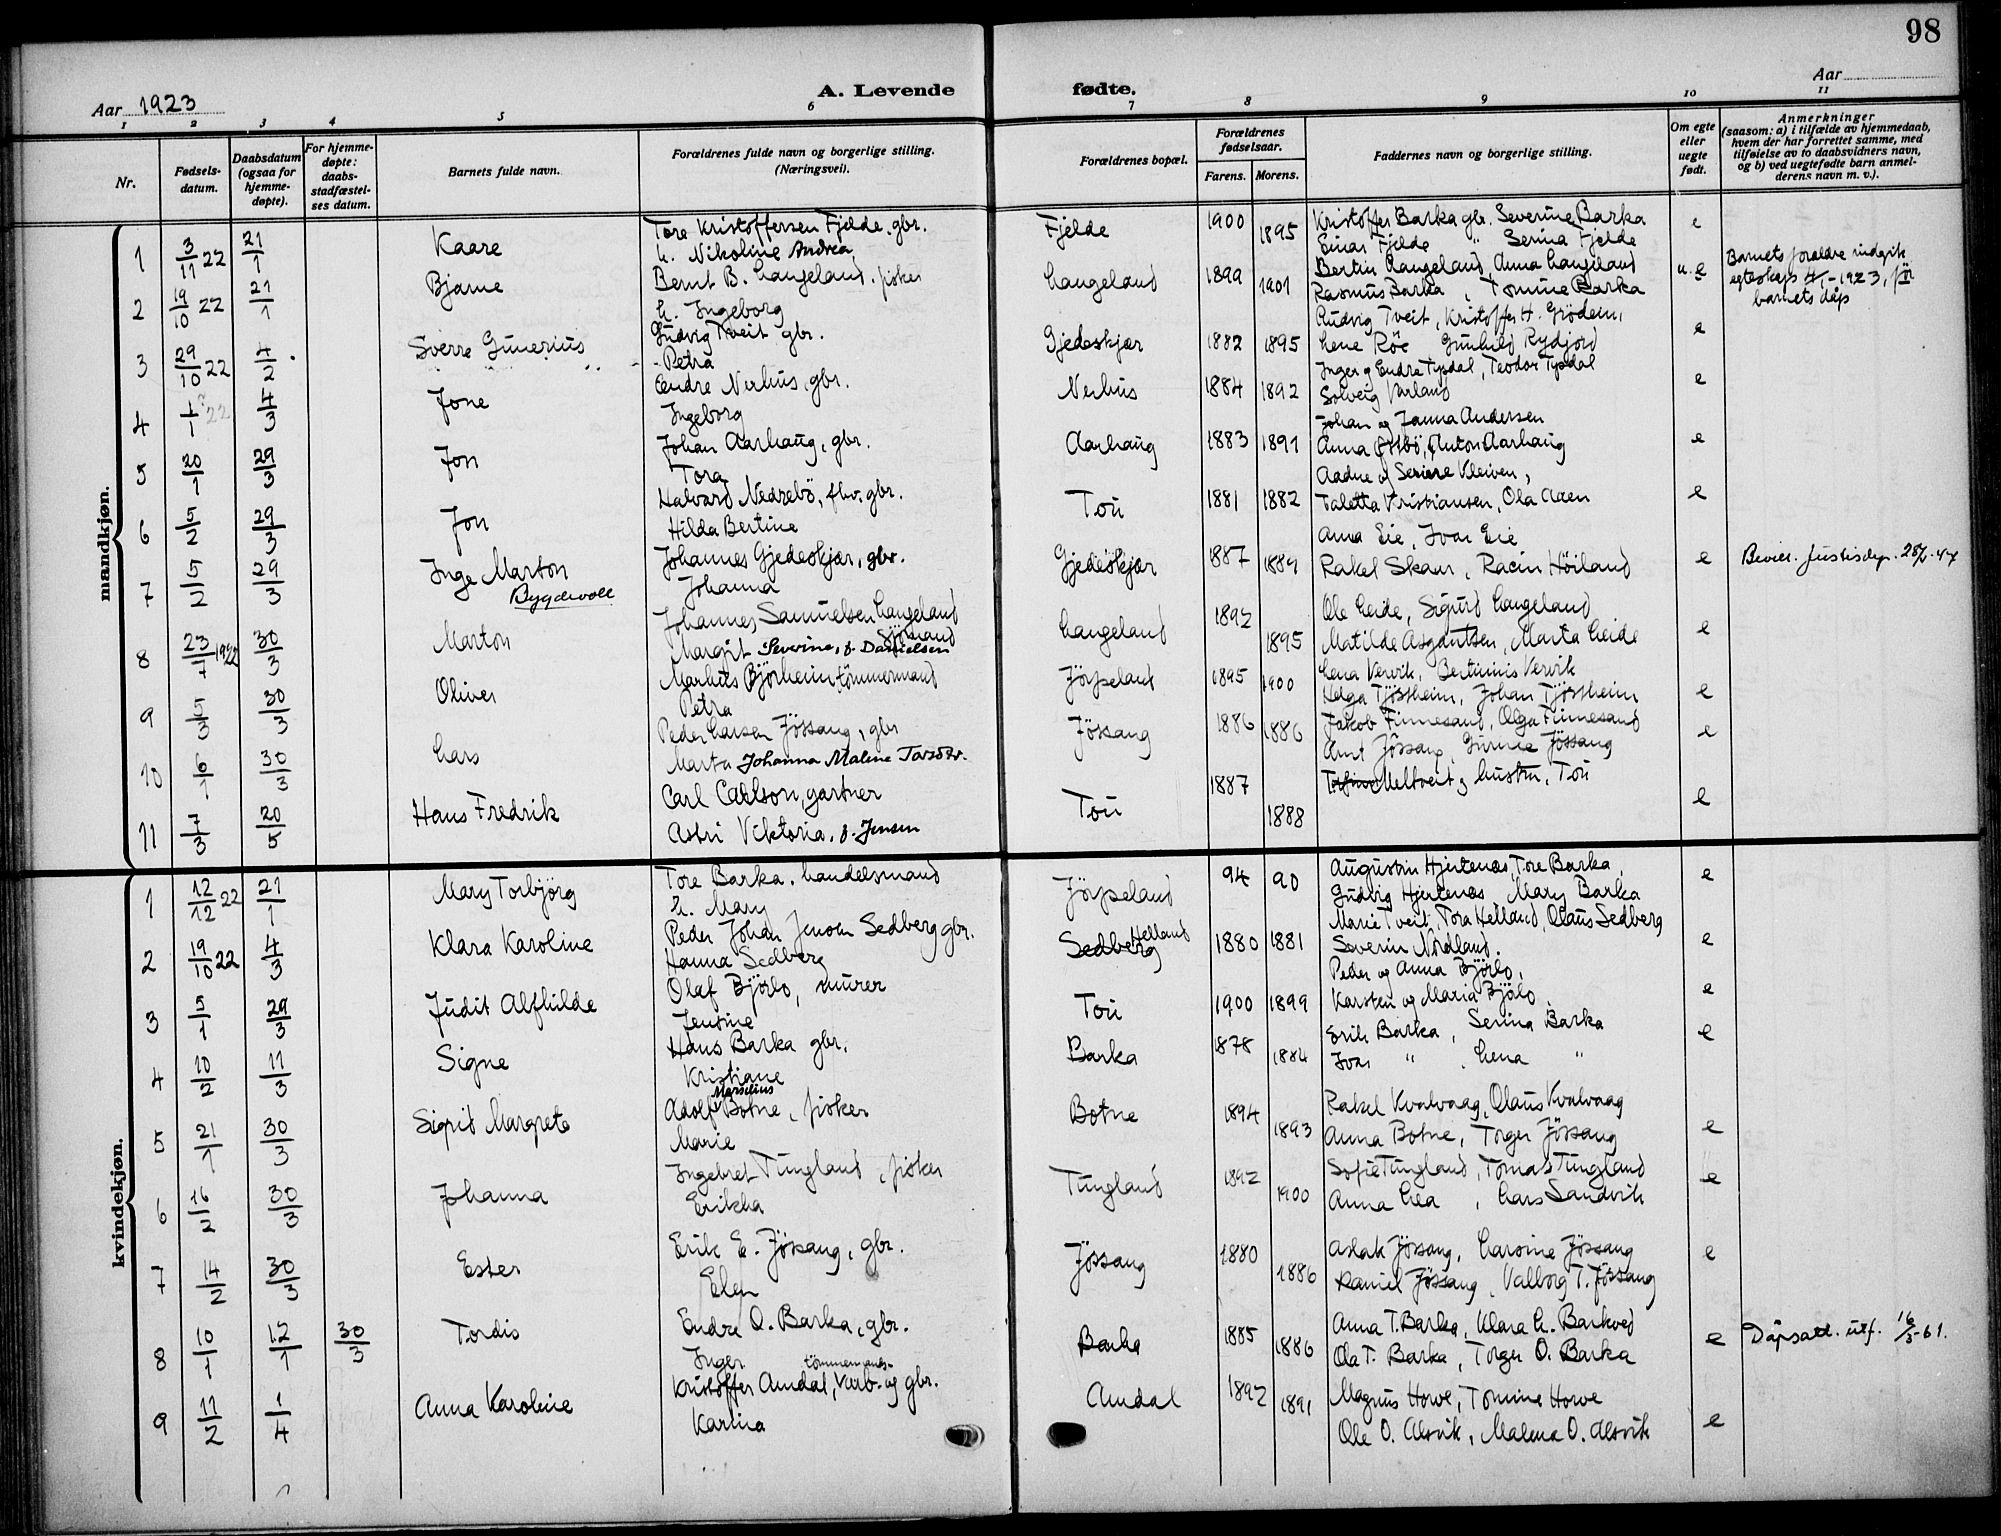 98
Aar 1923
A. Levende fødte.
Aar
1 2 3 4 5 6 7 8 9 10 11
Nr.
Fødsels-datum.
Daabsdatum (ogsaa for hjemme-døpte).
For hjemme-døpte: daabs-stadfæstel-ses datum.
Barnets fulde navn.
Forældrenes fulde navn og borgerlige stilling. (Næringsvei).
Forældrenes bopæl.
Forældrenes fødselsaar.
Farens. Morens.
Faddernes navn og borgerlige stilling.
Om egte eller uegte født.
Anmerkninger
(saasom: a) i tilfælde av hjemmedaab, hvem der har forrettet samme, med tilføielse av to daabsvidners navn, og b) ved uegtefødte barn anmel-derens navn m. v.).
mandkjøn.
1 3/11 22 21/1 Kaare Tore Kristoffersen Fjelde, gbr. Fjelde 1900 1895 Kristoffer Barka gbr. Severine Barka e
h. Nikoline Andrea Einar Fjelde " Serina Fjelde
2 19/10 22 21/1 Bjarne Bernt B. Langeland, fisker Langeland 1899 1901 Bertin Langeland, Anna Langeland u. e Barnets forældre indgik
h. Ingeborg Rasmus Barka, Tomine Barka egteskap 4/1-1923, før
barnets dåp
3 29/10 22 4/2 Sverre Gunerius Ludvig Tveit gbr. Gjedeskjær 1882 1895 Ludvig Tveit, Kristoffer H. Grödem, e
Petra Lene Röe Gunhild Rydjord
4 1/1 22 4/3 Jone Endre Nerhus, gbr. Nerhus 1884 1892 Inger og Endre Tysdal, Teodor Tysdal e
Ingeborg Solveig Varland
5 20/1 29/3 Jon Johan Aarhaug, gbr. Aarhaug 1883 1891 Johan og Janna Andersen e
Tora Anna Østbö, Anton Aarhaug
6 5/2 29/3 Jon Halvard Nedrebö, fhv. gbr. Tou 1881 1882 Aadne og Serine Kleiven, e
Hilda Bertine Taletta Kristiansen, Ola Aaen
7 5/2 29/3 Inge Marton Bygdevoll Johannes Gjedeskjær, gbr. Gjedeskjær 1887 1889 Anna Eie, Ivar Eie e Bevill. Justisdep.
Johanna Rakel Skaar, Racin Höiland
8 23/7 1922 30/3 Marton Johannes Samuelsen Langeland Sjömand Langeland 1892 1895 Ole Leide, Sigurd Langeland e
Margit Severine, f. Danielsen Matilde Asgautsen, Marta Leide
9 5/3 30/3 Oliver Markus Björheim, tömmermand Jörpeland 1895 1900 Lena Vervik, Bertinius Vervik e
Petra Helga Tjöstheim, Johan Tjöstheim
10 6/1 30/3 Lars Peder Larsen Jössang, gbr Jössang 1886 1886 Jakob Finnesand, Olga Finnesand e
Marta Johanna Malene Torsdtr. Arnt Jössang, Gurine Jössang
11 7/3 20/5 Hans Fredrik Carl Carlson, gartner Tou 1887 1888 Torfinn Meltveit og hustru, Tou e
Astri Viktoria, f. Jensen
kvindekjøn.
1 12/12 22 21/1 Mary Torbjörg Tore Barka, handelsmand Jörpeland 94 90 Augustin Hjertenæs, Tore Barka, e
h. Mary Gudvig Hjertenæs, Mary Barka
2 19/10 22 4/3 Klara Karoline Peder Johan Jensen Sedberg gbr. Sedberg Helland 1880 1881 Marie Tveit, Tora Helland, Olaus Sedberg e
Hanna Sedberg Severin Nordland.
3 5/1 29/3 Judit Alfhilde Olaf Björlo, murer Tou 1900 1899 Peder og Anna Björlo, e
Jentine Karsten og Maria Björlo
4 10/2 11/3 Signe Hans Barka gbr. Barka 1878 1884 Erik Barka, Serina Barka e
Kristiane Ivar " , Lena "
5 21/1 30/3 Sigrid Margrete Adolf Marselius Botne, fisker Botne 1894 1893 Rakel Kvalvaag, Olaus Kvalvaag e
Marie Anna Botne, Torger Jössang
6 16/2 30/3 Johanna Ingebret Tungland, fisker Tungland 1892 1900 Sofie Tungland, Tomas Tungland e
Erikka Anna Lea , Lars Sandvik
7 14/2 30/3 Ester Erik E. Jössang, gbr. Jössang 1880 1886 Aslak Jössang, Larsine Jössang e
Elen Daniel Jössang, Valborg T. Jössang
8 10/1 12/1 30/3 Tordis Endre O. Barka, gbr. Barka 1885 1886 Anna T. Barka, Klara L. Barkved e Dåpsatt. utf. 16/3-61.
Inger Ola T. Barka, Torger O. Barka
9 11/2 1/4 Anna Karoline Kristoffer Amdal, tömmermand- og gbr. Amdal 1892 1891 Magnus Horve, Tomine Horve e
Karina Ole O. Alsvik, Malena O. Alsvik